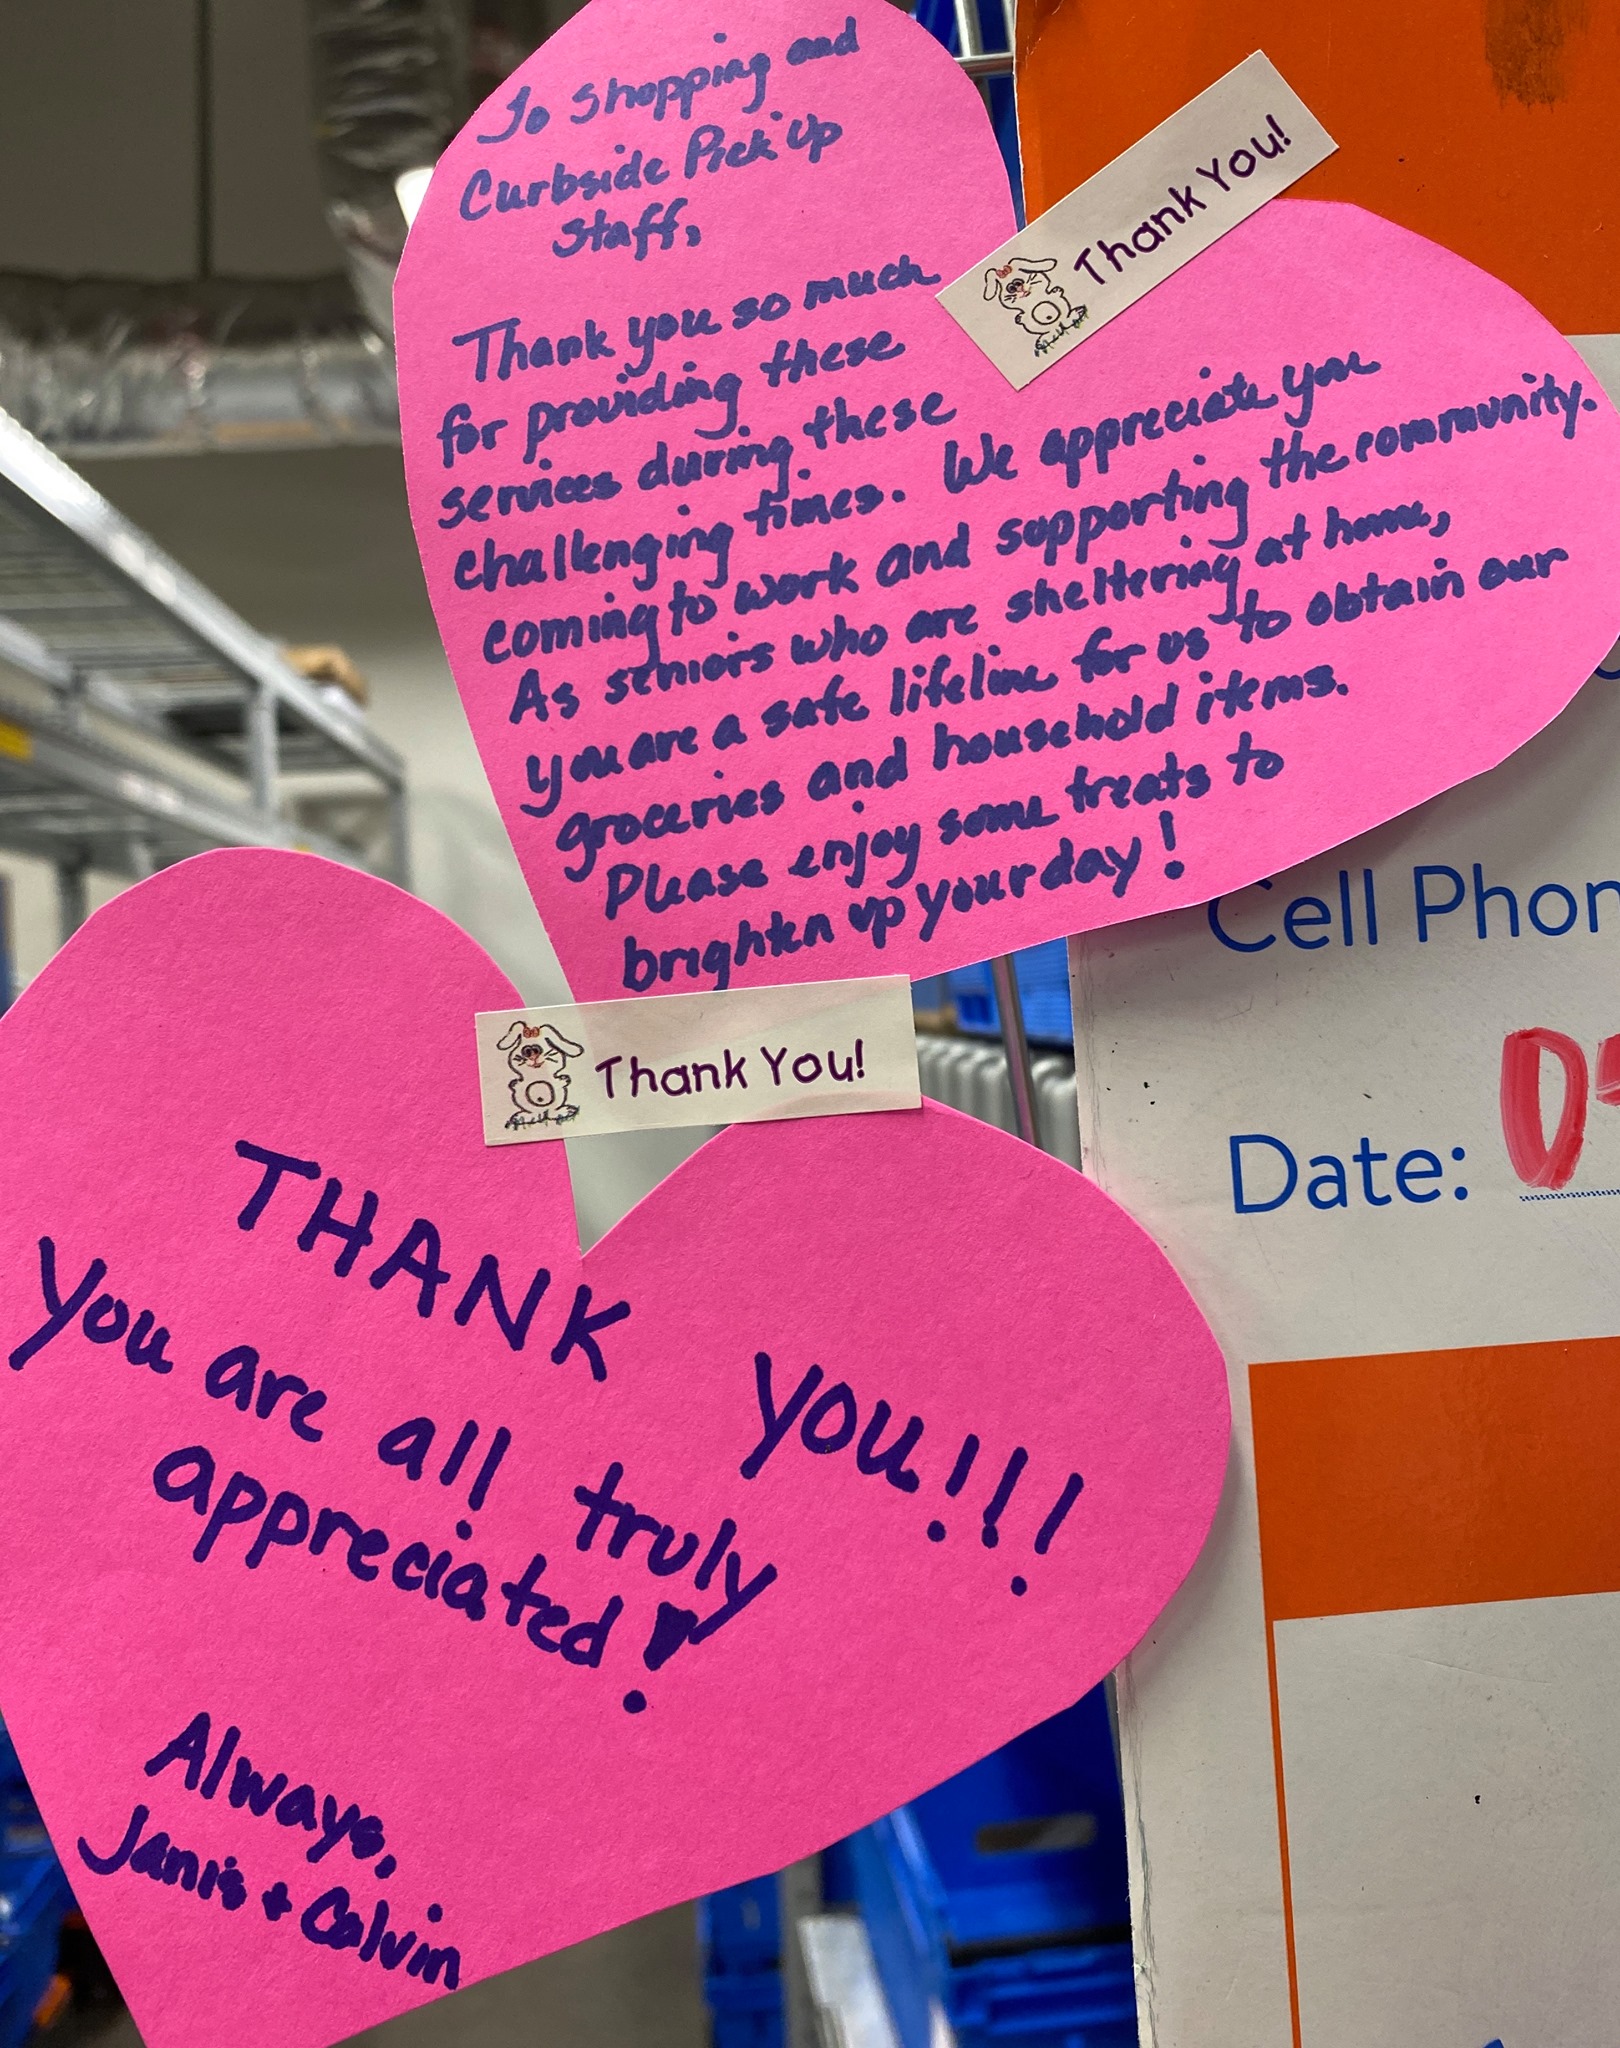 To Shopping and
Curbside Pick Up
Staff,
Thank you so much
for providing these
services during these
challenging times. We appreciate you
coming to work and supporting the community.
As seniors who are sheltering at home,
you are a safe lifeline for us to obtain our
groceries and household items.
Please enjoy some treats to
brighten up your day!
Thank You!
Thank You!
THANK YOU!!!
You are all truly
appreciated!
Always,
Janis + Calvin
Cell Phon
Date: 0